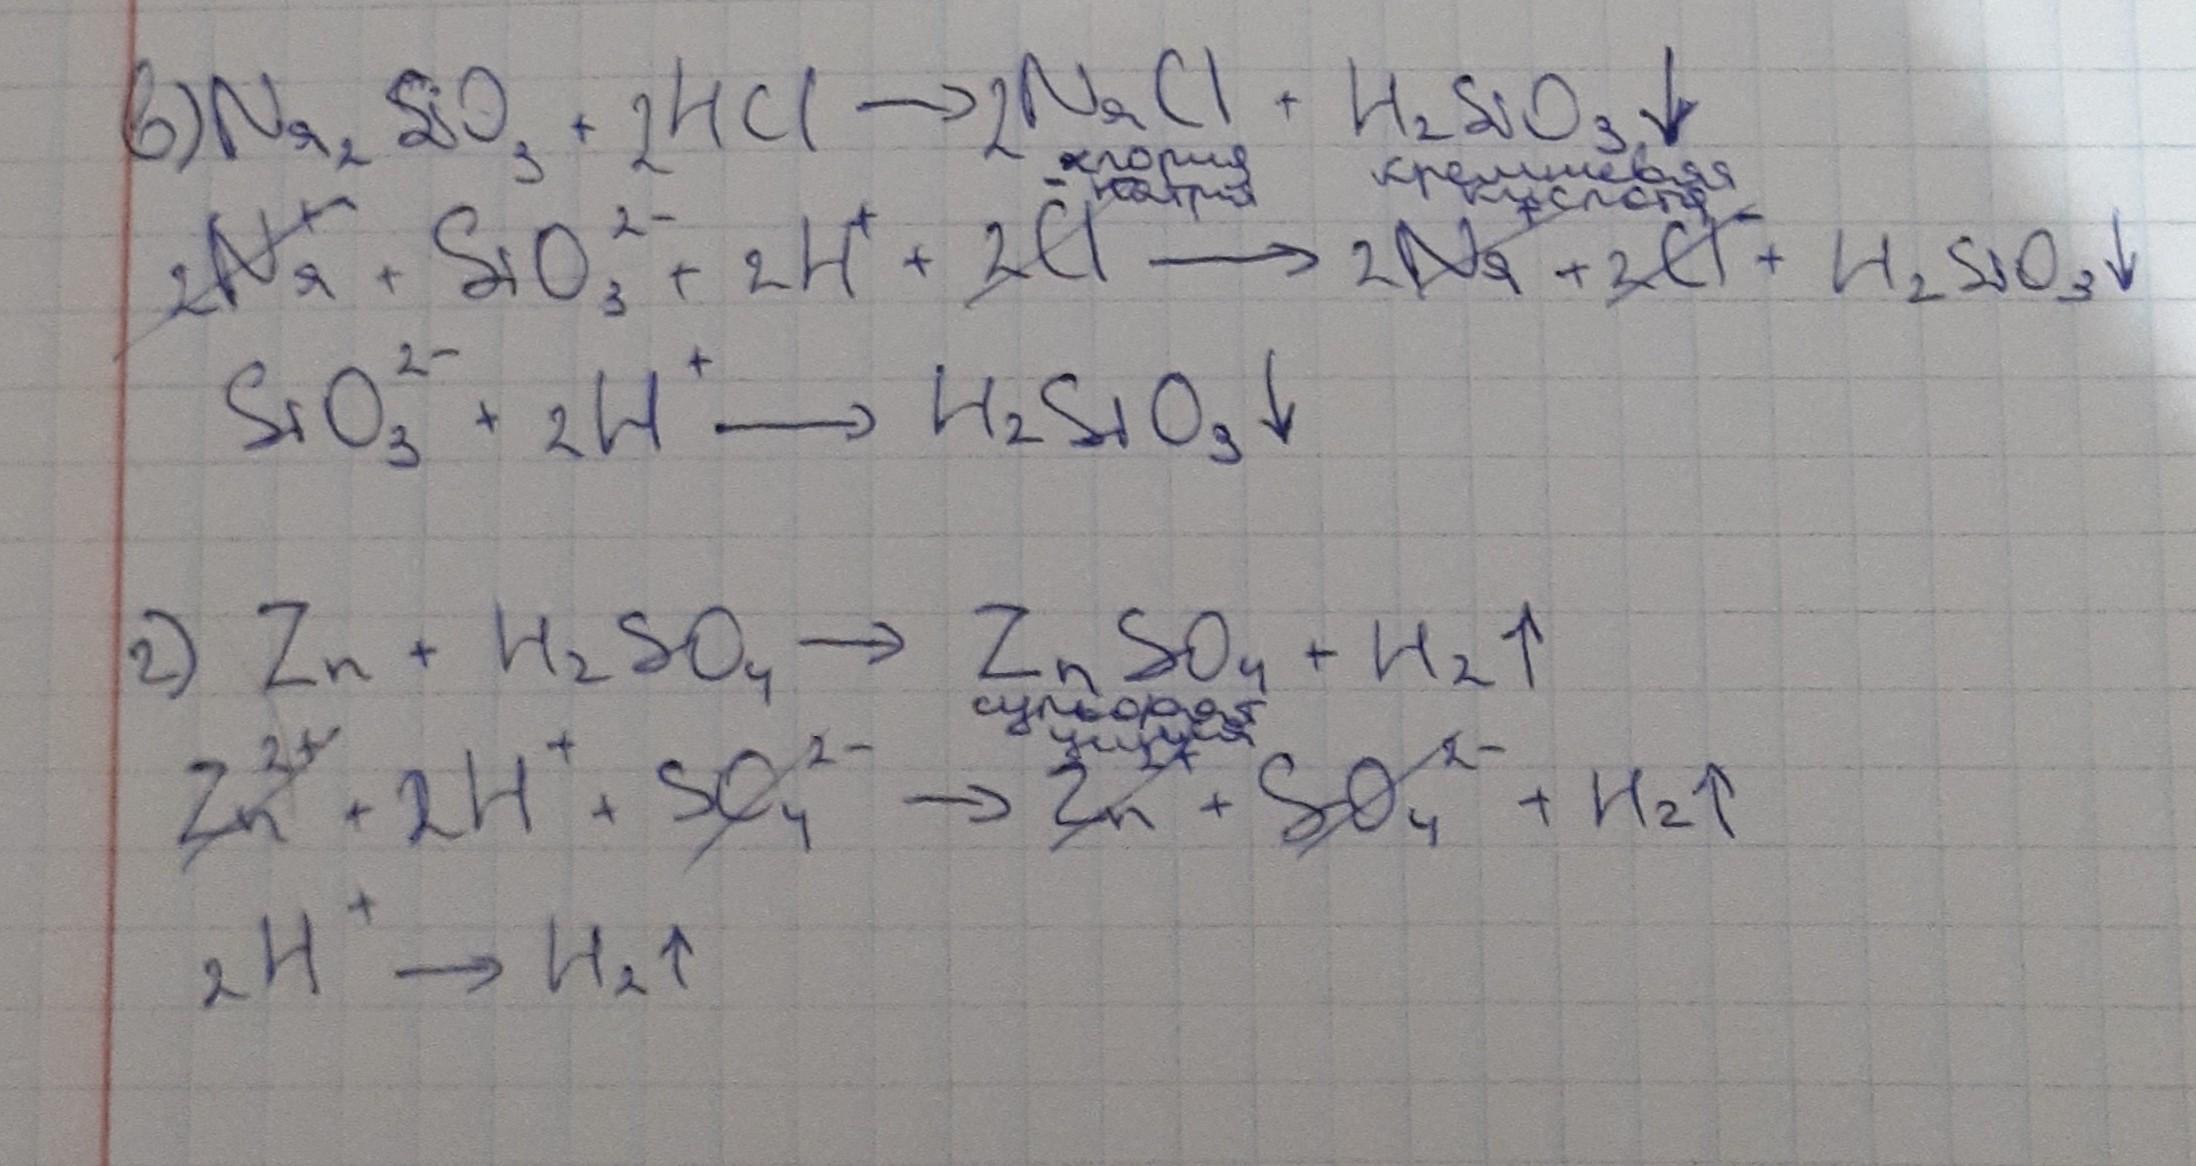 в) Na₂SiO₃ + 2HCl → 2NaCl + H₂SiO₃↓
хлорид кремниевая
натрия кислота
2Na⁺ + SiO₃²⁻ + 2H⁺ + 2Cl⁻ → 2Na⁺ + 2Cl⁻ + H₂SiO₃↓
SiO₃²⁻ + 2H⁺ → H₂SiO₃↓
г) Zn + H₂SO₄ → ZnSO₄ + H₂↑
сульфат
цинка
Zn²⁺ + 2H⁺ + SO₄²⁻ → Zn²⁺ + SO₄²⁻ + H₂↑
2H⁺ → H₂↑